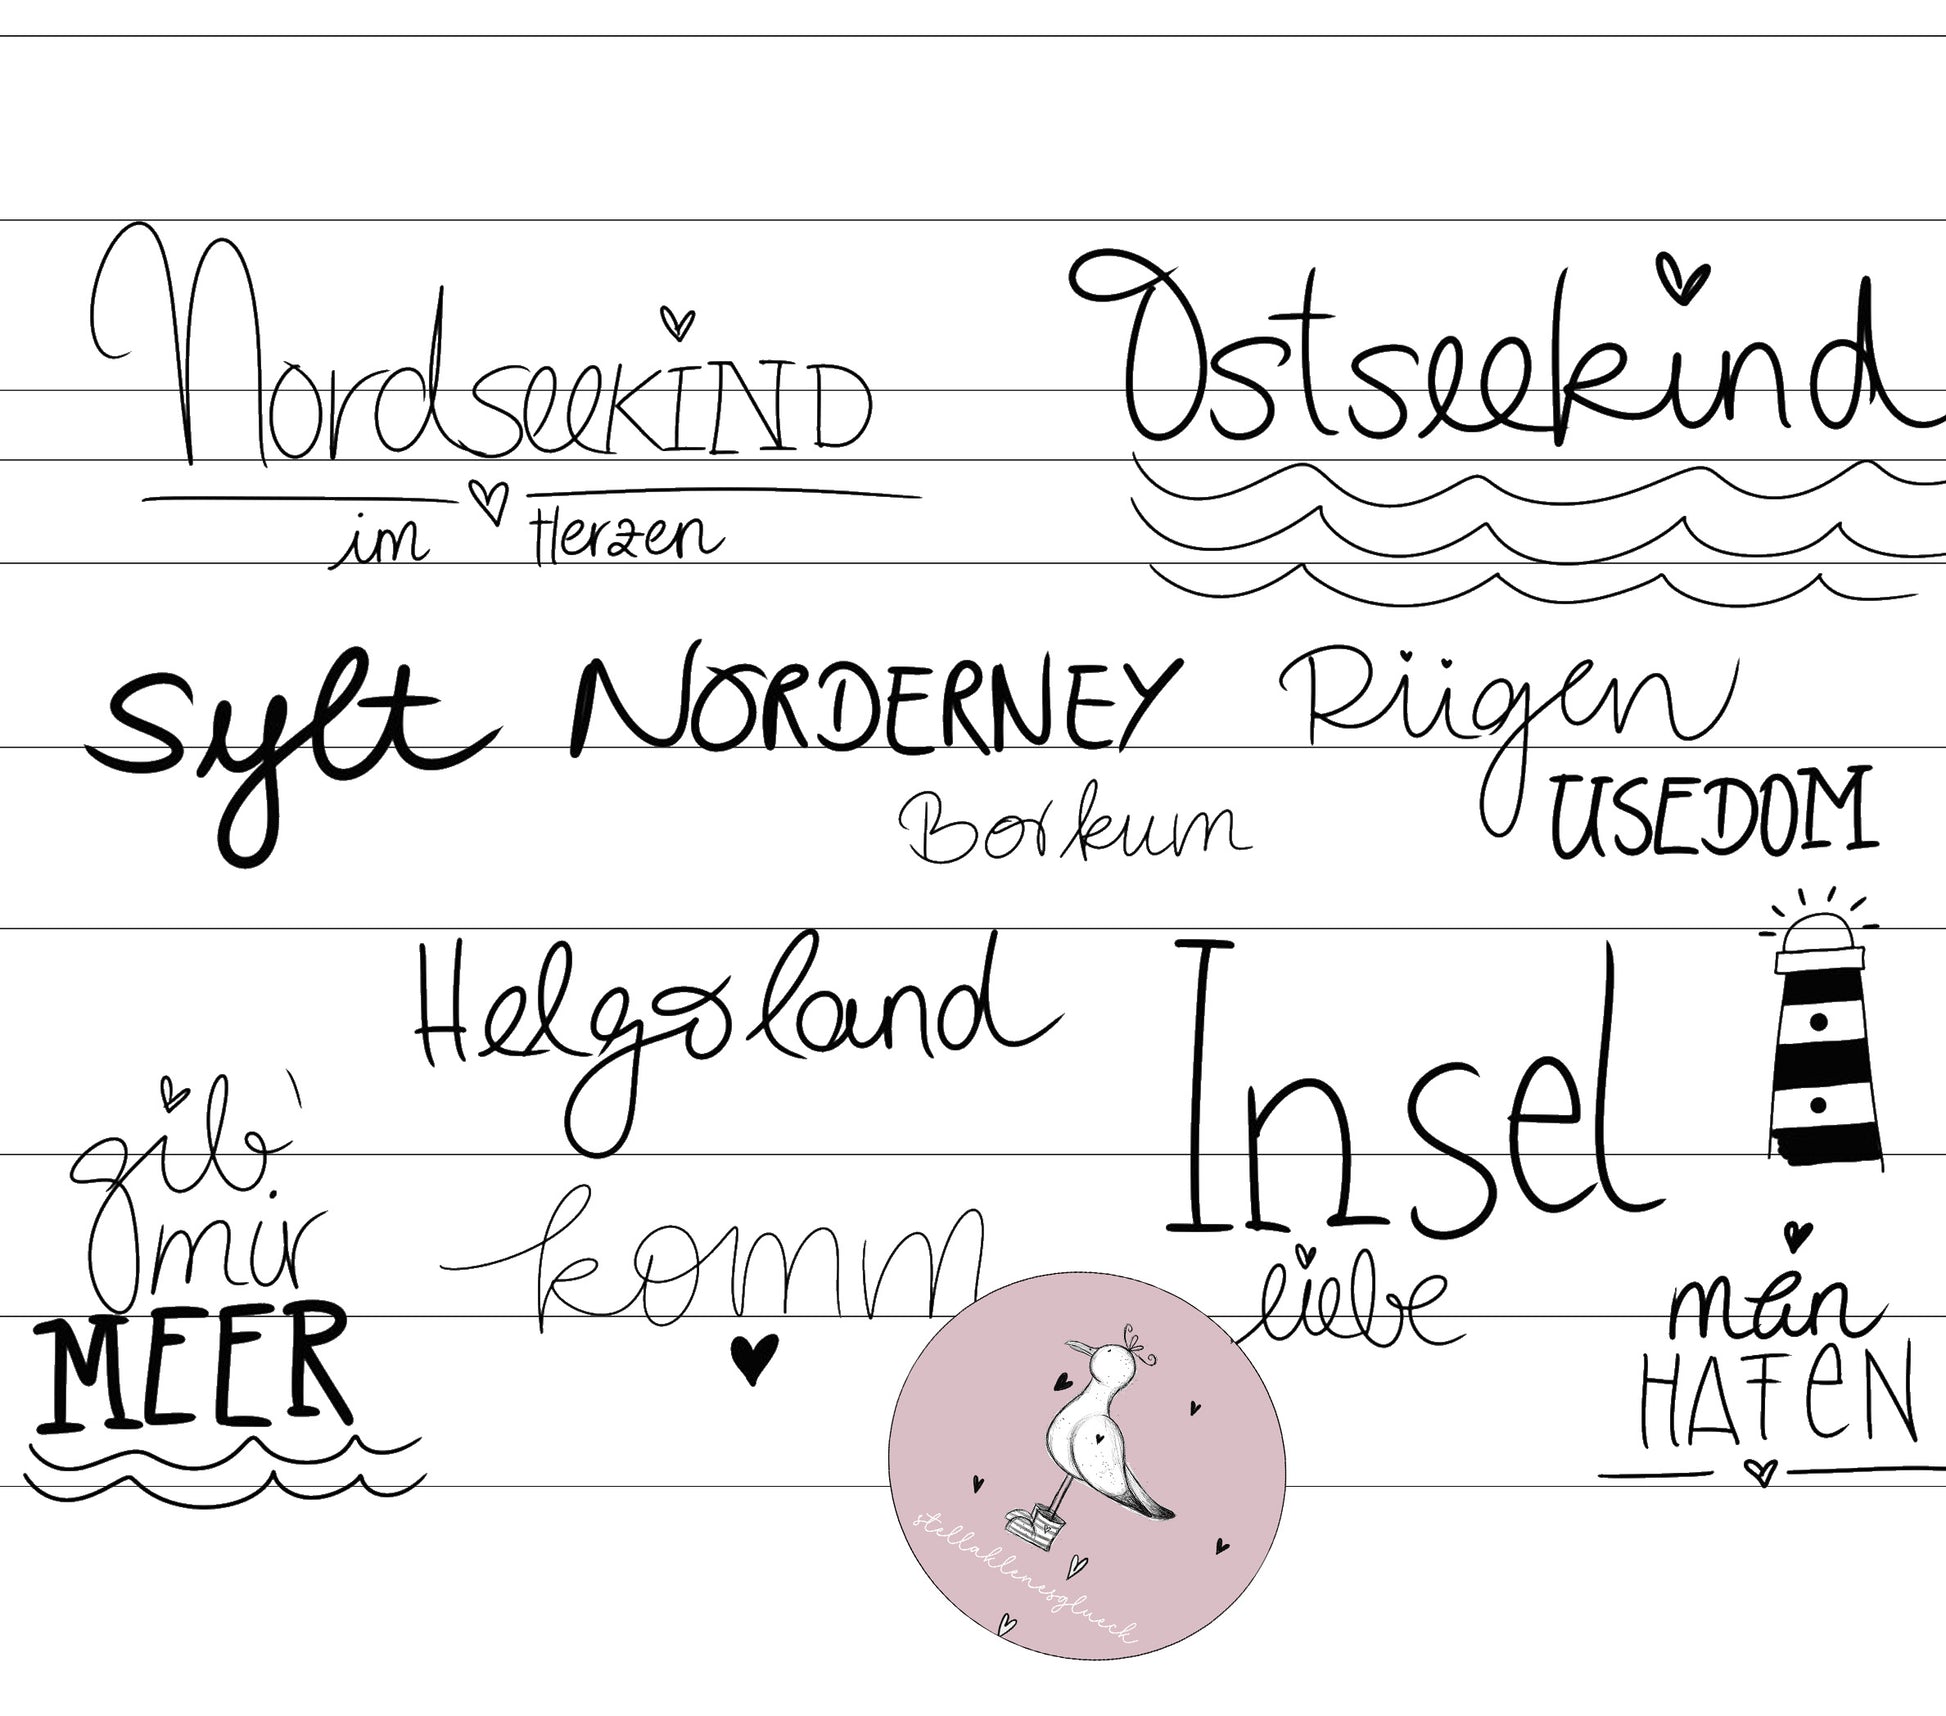 NordseeKIND
im Herzen
Ostseekind
Sylt NORDERNEY Rügen
Borkum USEDOM
Helgoland
Insel
liebe
gib'
mir
MEER
komm
mein
HAFEN
stellaklenesglueck